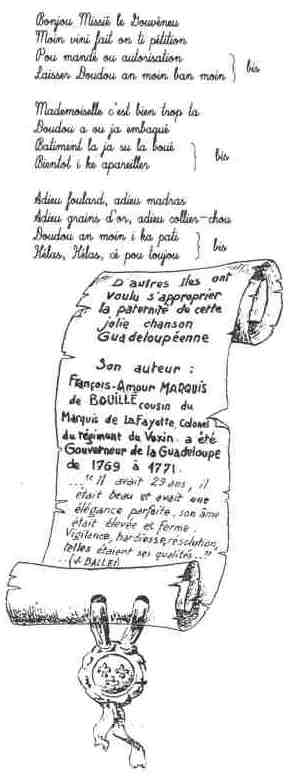 Bonjou Missié le Gouvèneu
Moin vini fait on ti pétition
Pou mandé ou autorisation
Laisser Doudou an moin ban moin } bis
Mademoiselle c'est bien trop ta
Doudou a ou ja embaqué
Batiment la ja su la boué
Bientot i ke apareiller } bis
Adieu foulard, adieu madras
Adieu grains d'or, adieu collier-chou
Doudou an moin i ka pati
Hélas, Hélas, cé pou toujou } bis
D'autres Iles ont
voulu s'approprier
la paternité de cette
jolie chanson
Guadeloupéenne
Son auteur :
François-Amour MARQUIS
de BOUILLE cousin du
Marquis de LaFayette, Colonel
du régiment du Vexin. a été
Gouverneur de la Guadeloupe
de 1769 à 1771.
..." Il avait 29 ans, il
était beau et avait une
élégance parfaite, son âme
était élevée et ferme.
Vigilance, hardiesse, résolution,
telles étaient ses qualités..."
..(J. BALLET)